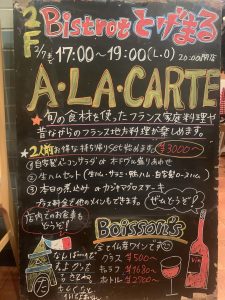 2F Bistrot とげまる
2/7まで 17:00〜19:00(L.O) 20:00閉店
A・LA・CARTE
★旬の食材を使ったフランス家庭料理や
昔ながらのフランス地方料理が楽しめます。
★2人前お得な持ち帰りSet始めます。¥3000〜
①自家製ベーコンサラダ or オードブル盛りあわせ
②生ハムセット(生ハム・サラミ・鴨ハム・自家製ロースハム)
③本日の煮込み or カジキマグロステーキ
プラス料金で他のメインもできます。ぜひどうぞ!
店内でのお食事も
どうぞ!
Boisson's
全て仏産ワインです
グラス ¥500〜
キャラフ ¥1680〜
ボトル ¥2500〜